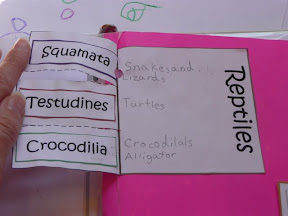 Squamata
Snakes and
Lizards
Testudines
Turtles
Crocodilia
Crocodilals
Alligator
Reptiles